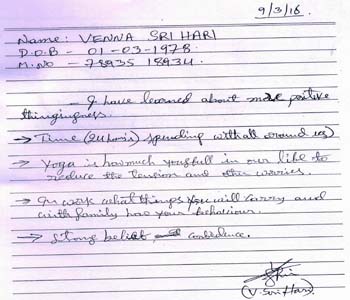 9/3/16.
Name: VENNA SRI HARI
D.O.B - 01-03-1978
M.NO - 78935 18934.
- I have learned about more positive
thingingness.
→ Time (24 hours) spending with all around us)
→ Yoga is how much in our life to
reduce the tension and other worries.
→ In work what things you will carry and
with family how your behaviour.
→ Strong belief and confidence.
(V. Sri Hari)